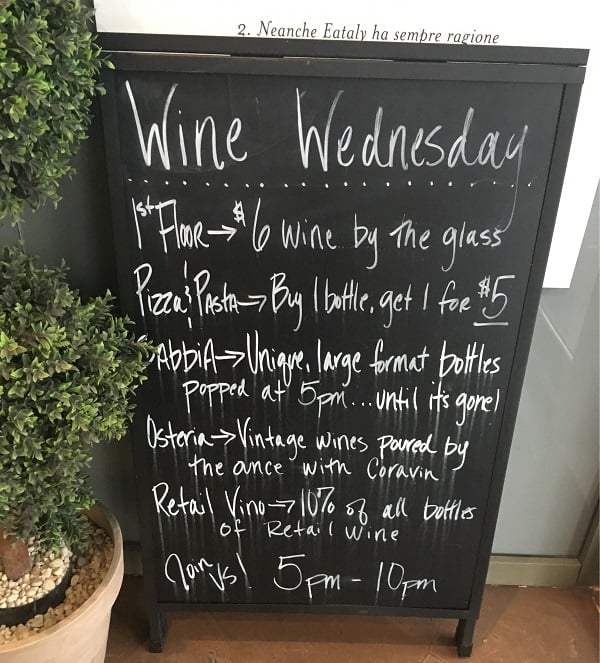 2. Neanche Eataly ha sempre ragione
Wine Wednesday
1st Floor → $6 wine by the glass
Pizza & Pasta → Buy 1 bottle, get 1 for $5
SAbbiA → Unique, large format bottles
popped at 5pm... until it's gone!
Osteria → Vintage wines poured by
the ance with Coravin
Retail Vino → 10% of all bottles
of Retail Wine
Join us! 5pm - 10pm